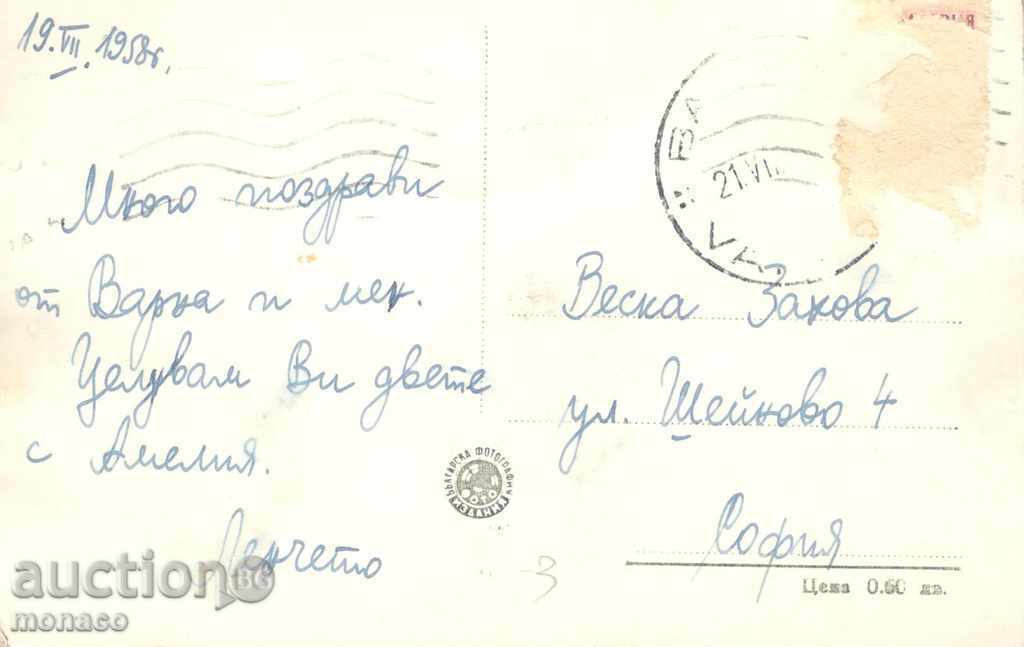 19.VII.1958г.
Много поздрави
от Варна и мен.
Целувам Ви двете
с Амелия.
Ленчето
ВА
21.VII
Веска Закова
ул. Шейново 4
София
БЪЛГАРСКА ФОТОГРАФИЯ
ФОТО
ИЗДАНИЯ
3
Цена 0.60 лв.
auction BG
monaco